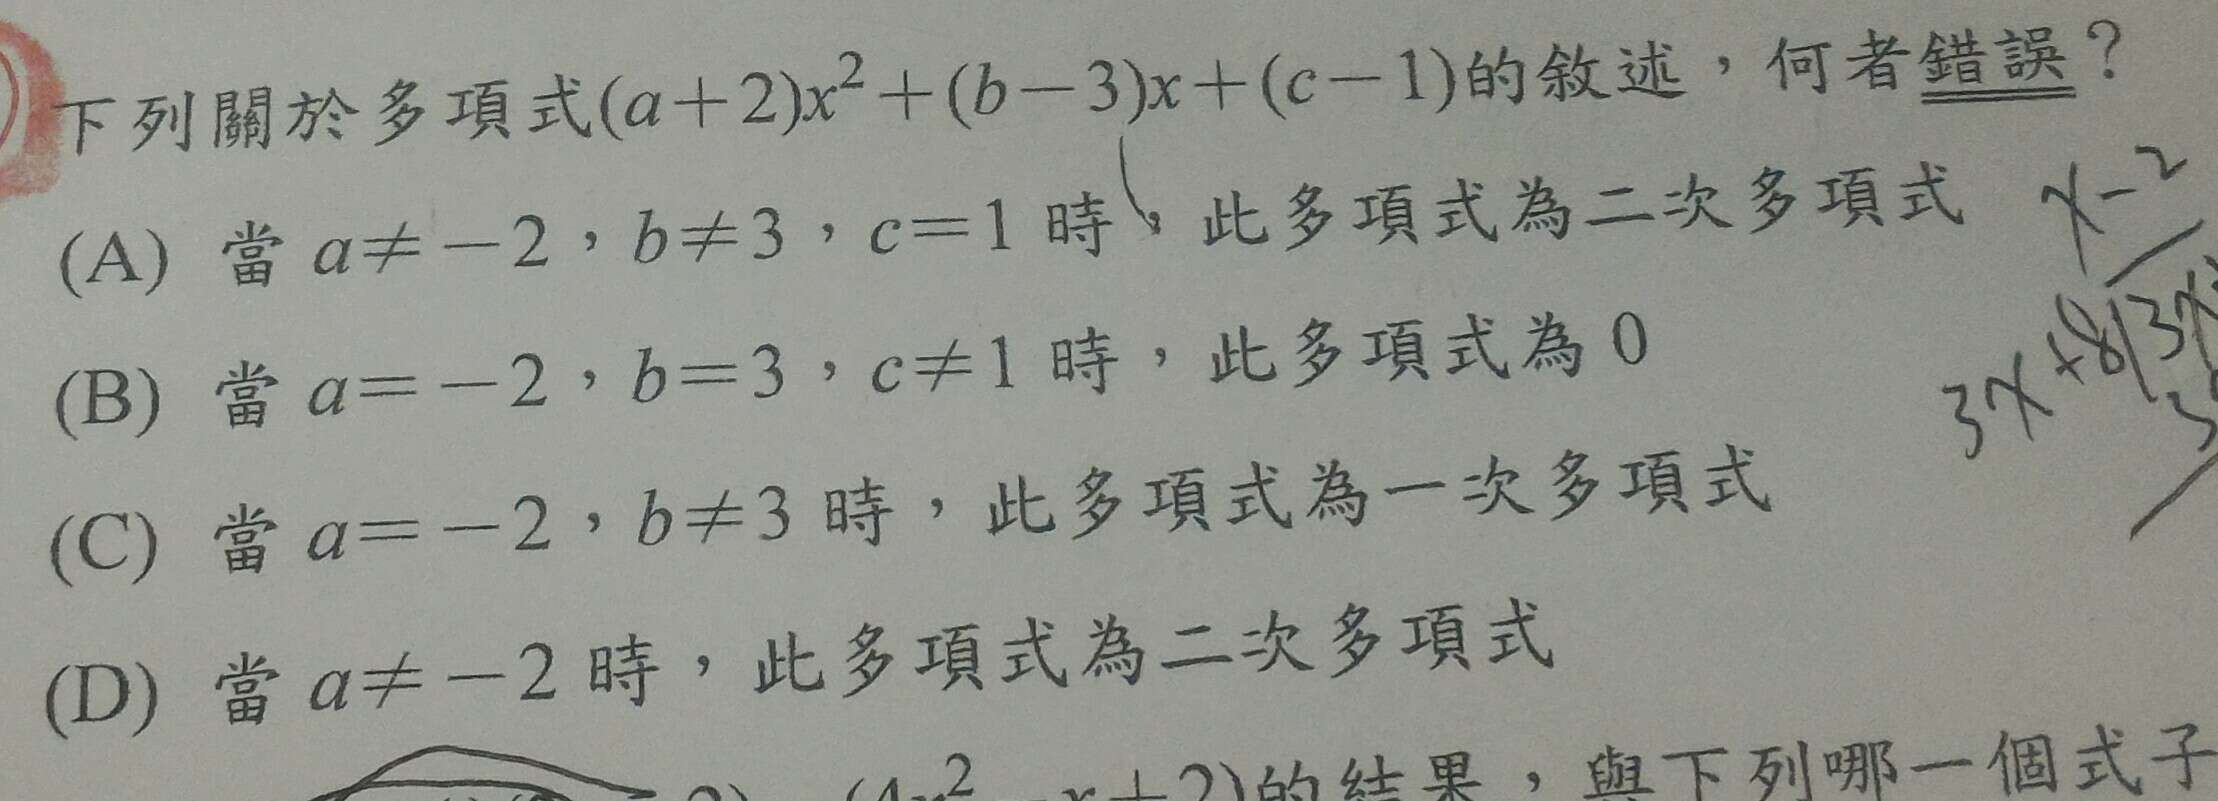 下列關於多項式(a+2)x²+(b-3)x+(c-1)的敘述，何者錯誤？
(A) 當 a≠-2，b≠3，c=1 時，此多項式為二次多項式
x-2
(B) 當 a=-2，b=3，c≠1 時，此多項式為 0
3x+8
(C) 當 a=-2，b≠3 時，此多項式為一次多項式
(D) 當 a≠-2 時，此多項式為二次多項式
的結果，與下列哪一個式子